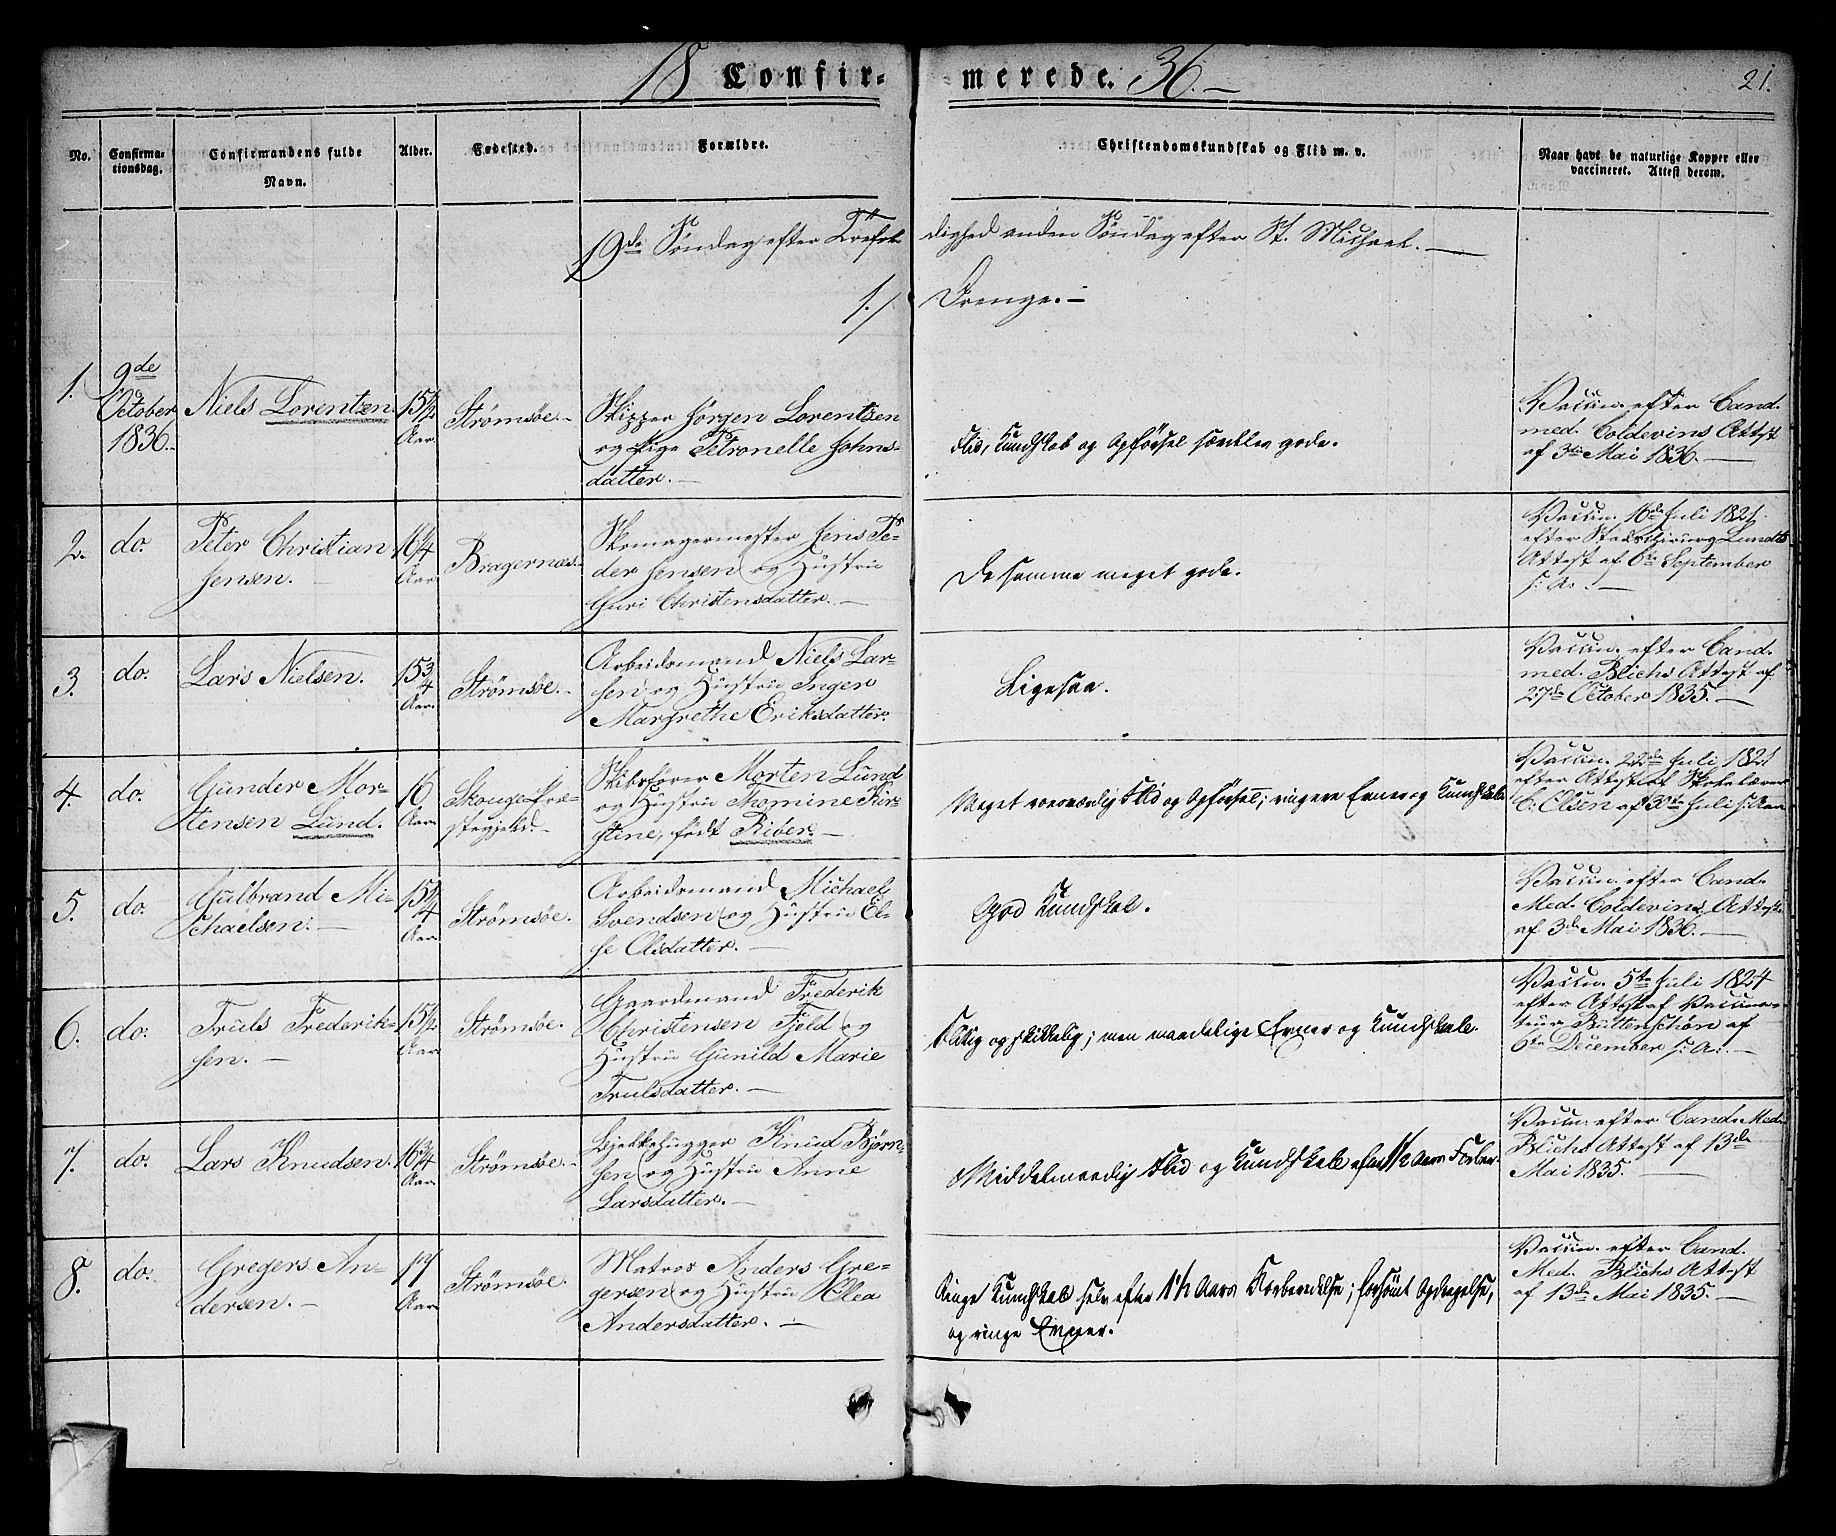 18 Confir- merede. 36.-
21.
No.
Confirma-
tionsdag.
Confirmandens fulde
Navn.
Alder.
Fødested.
Forældre.
Christendomskundskab og Flid m. v.
Naar havt de naturlige Kopper eller
vaccineret. Attest derom.
19de Søndag efter Trefol- dighed anden Søndag efter St. Michael.-
1./ Drenge.-
1.
9de
October
1836.
Niels Lorentzen.
15 1/2
Aar
Strømsøe.-
Skipper Jørgen Lorentzen
og Pige Petronelle Johns-
datter.-
Flid, Kundskab og Opførsel samtlig gode.
Vaccin. efter Cand.
med. Coldevins Attest
af 3de Mai 1836.-
2.
do.
Peter Christian
Jensen.-
16 1/4
Aar
Bragernæs.
Skomagermester Jens Pe-
der Jensen og Hustrue
Guri Christensdatter.-
De samme meget gode.
Vaccin. 16de Juli 1821
efter Stadschirurg Lundts
Attest af 6te September
s: A:.-
3.
do.
Lars Nielsen.
15 3/4
Aar.
Strømsøe.-
Arbeidsmand Niels Lar-
sen og Hustrue Inger
Margrethe Eriksdatter.
Ligesaa.
Vaccin. efter Cand.
med. Blichs Attest af
27de October 1835.-
4.
do.
Gunder Mor-
tensen Lund.
16
Aar.
Skouge Præ-
stegjeld.-
Skibsfører Morten Lund
og Hustrue Thomine Kir-
stine, født Riber.-
Meget roesværdig Flid og Opførsel; ringere Evner og Kundskab.
Vaccin. 22de Juli 1821
efter Attest af Skolelærer
C. Olsen af 31te Juli s: Aar
5.
do.
Gulbrand Mi-
chaelsen.-
15 1/4
Aar
Strømsøe.
Arbeidsmand Michael
Svendsen og Hustrue El-
se Olsdatter.-
God Kundskab.
Vaccin. efter Cand.
Med. Coldevins Attest
af 3de Mai 1836.-
6.
do.
Truls Frederik-
sen.-
15 1/2
Aar
Strømsøe.
Gaardmand Frederik
Christensen Fjeld og
Hustrue Gunild Marie
Trulsdatter.-
Flittig og skikkelig; men maadelige Evner og Kundskab.
Vaccin. 5te Juli 1824
efter Attest af Vaccina-
teur Buttenschøn af
6te December s: A:.-
7.
do.
Lars Knudsen.
16 3/4
Aar
Strømsøe.-
Bjelkehugger Knud Bjørn-
sen og Hustrue Anne
Larsdatter.-
Middelmaadig Flid og Kundskab efter 1 1/2 Aars Forber.
Vaccin. efter Cand. Med.
Blichs Attest af 13de
Mai 1835.-
8.
do.
Gregers An-
dersen.-
17
Aar
Strømsøe.
Matros Anders Gre-
gersen og Hustrue Olea
Andersdatter.-
Ringe Kundskab selv efter 1 1/2 Aars Forberedelse; forsømt Opdragelse,
og ringe Evner.
Vaccin. efter Cand.
Med. Blichs Attest
af 13de Mai 1835.-